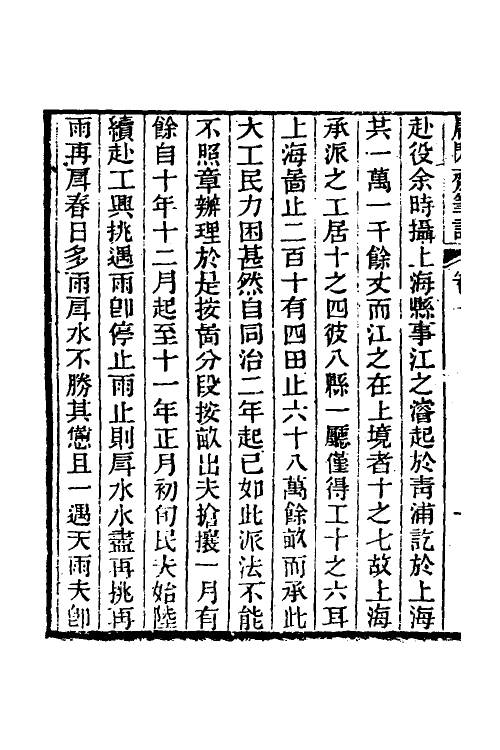 赴役余時攝上海縣事江之濬起於靑浦訖於上海
其一萬一千餘丈而江之在上境者十之七故上海
承派之工居十之四彼八縣一廳僅得工十之六耳
上海啚止二百十有四田止六十八萬餘畝而承此
大工民力困甚然自同治二年起已如此派法不能
不照章辦理於是按啚分段按畝出夫搶攘一月有
餘自十年十二月起至十一年正月初旬民夫始陸
續赴工興挑遇雨卽停止雨止則戽水水盡再挑再
雨再戽春日多雨戽水不勝其憊且一遇天雨夫卽